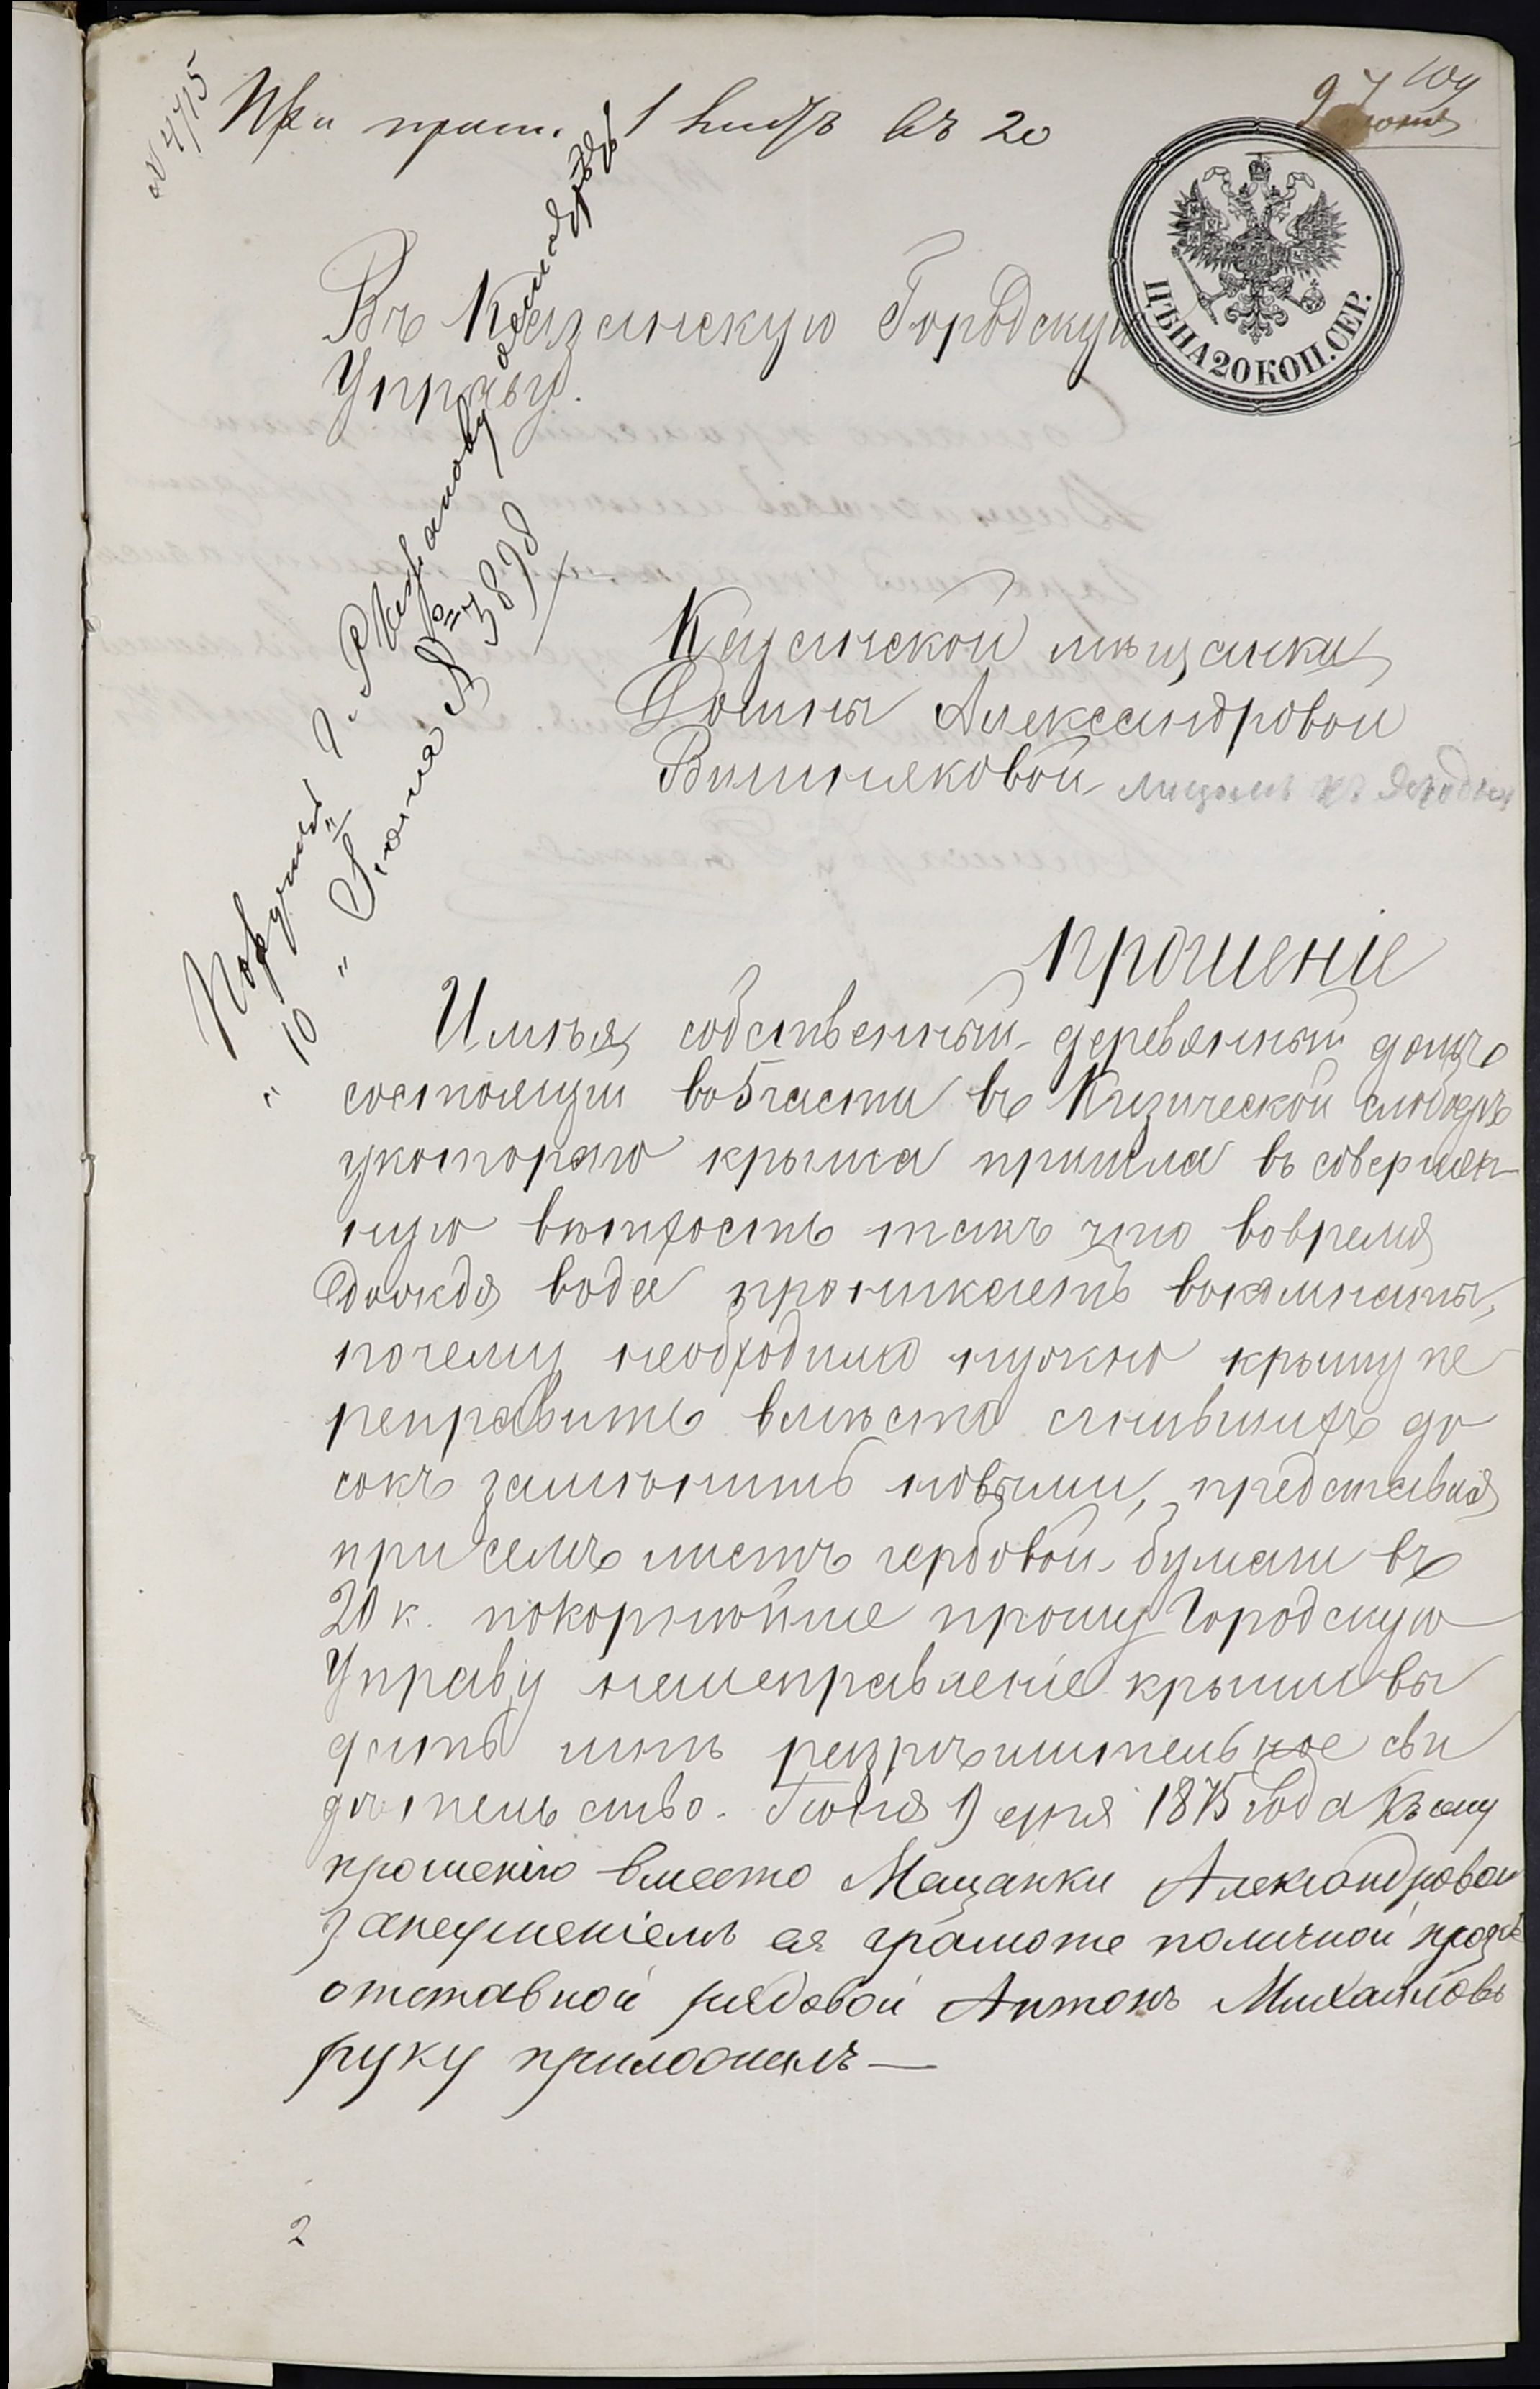 № 4715
При прош. 1 листъ въ 20
9 Іюня
ЦѢНА 20 КОП. СЕР.
Въ Казанскую Городскую
Управу.
Поручить г.
"10" Іюня № 3898
Казанской мѣщанки
Домны Александровой
Вишняковой
прошеніе
Имѣя собственный деревянный домъ
состоящій во 5 части въ Кизической слободѣ
укотораго крыша пришла въ совершен-
ную вѣтхость такъ что вовремя
дождя вода проникаетъ вокомнаты,
почему необходимо нужно крышу пе
реправить вмѣсто сгнившихъ до
сокъ замѣнить новыми, представляя
при семъ листъ гербовой бумаги въ
20 к. покорнѣйше прошу Городскую
Управу крыши вы
дать мнѣ разрѣшительное сви
дѣтельство. Іюня 9 дня 1875 года Къ сему
прошенію вместо Мещанки Александровой
занеуменіемъ ея грамоте поличной прозбѣ
отставной рядовой Антонъ Михайловъ
руку приложилъ —
2